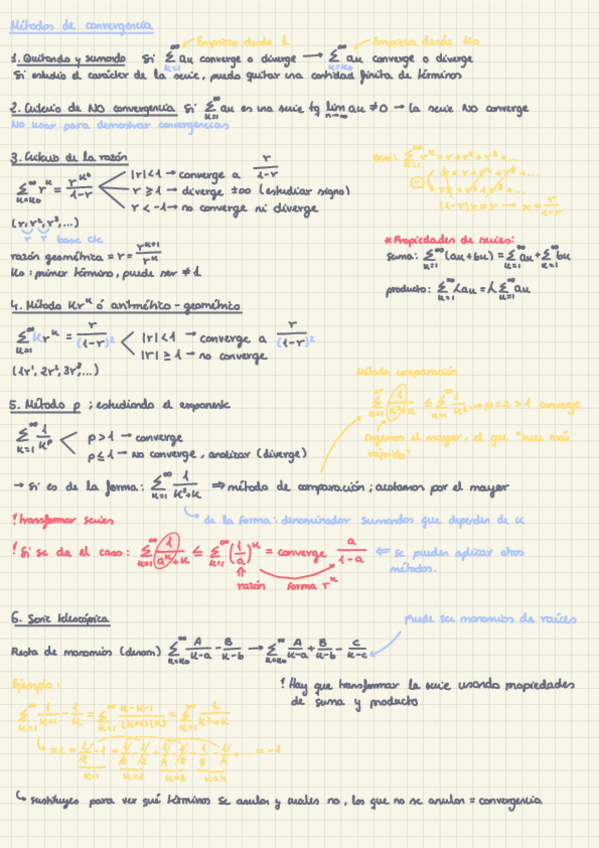 Métodos de convergencia
Empieza desde 1
Empieza desde K₀
1. Quitando y sumando Si ∑_{k=1}^∞ aₖ converge o diverge → ∑_{k=k₀}^∞ aₖ converge o diverge
Si estudio el carácter de la serie, puedo quitar una cantidad finita de términos
2. Criterio de NO convergencia Si ∑_{k=1}^∞ aₖ es una serie tq lim_{n→∞} aₖ ≠ 0 → la serie NO converge
No usar para demostrar convergencias
3. Criterio de la razón
∑_{k=k₀}^∞ r^k = r^{k₀}/(1-r)
|r|<1 → converge a r/(1-r)
r ≥ 1 → diverge ±∞ (estudiar signo)
r < -1 → no converge ni diverge
(r, r², r³, ...)
r r base cte
razón geométrica = r = r^{k+1}/r^k
K₀: primer término, puede ser ≠ 1
∑_{k=1}^∞ r^k = r + r² + r³ + ...
x = r + r² + r³ + ...
rx = r² + r³ + ...
(1-r)x = r → x = r/(1-r)
*Propiedades de series:
suma: ∑_{k=1}^∞ (aₖ + bₖ) = ∑_{k=1}^∞ aₖ + ∑_{k=1}^∞ bₖ
producto: ∑_{k=1}^∞ λaₖ = λ ∑_{k=1}^∞ aₖ
4. Método Kr^k ó aritmético-geométrico
∑_{k=1}^∞ Kr^k = r/(1-r)²
|r| < 1 → converge a r/(1-r)²
|r| ≥ 1 → no converge
(1r¹, 2r², 3r³, ...)
Método comparación
∑_{k=1}^∞ 1/(k²+k) ≤ ∑_{k=1}^∞ 1/k² → p = 2 > 1 converge
cogemos el mayor, el que "crece más
rápido"
5. Método p ; estudiando el exponente
∑_{k=1}^∞ 1/k^p
p > 1 → converge
p ≤ 1 → No converge, analizar (diverge)
→ Si es de la forma: ∑_{k=1}^∞ 1/(k²+k) ⇒ método de comparación ; acotamos por el mayor
de la forma: denominador sumandos que dependen de k
! transformar series
! Si se da el caso: ∑_{k=1}^∞ 1/(a^k+k) ≤ ∑_{k=1}^∞ (1/a)^k = converge a/(1-a) ⇐ se pueden aplicar otros
métodos.
razón forma r^k
6. Serie telescópica
puede ser monomios de raíces
Resta de monomios (denom) ∑_{k=k₀}^∞ A/(k-a) - B/(k-b) → ∑_{k=k₀}^∞ A/(k-a) + B/(k-b) - C/(k-c)
! Hay que transformar la serie usando propiedades
de suma y producto
Ejemplo:
∑_{k=1}^∞ 1/(k+1) - 1/k = ∑_{k=1}^∞
k=1 k=2 k=3 k=4
... = -1
↳ sustituyes para ver qué términos se anulan y cuales no, los que no se anulan = convergencia